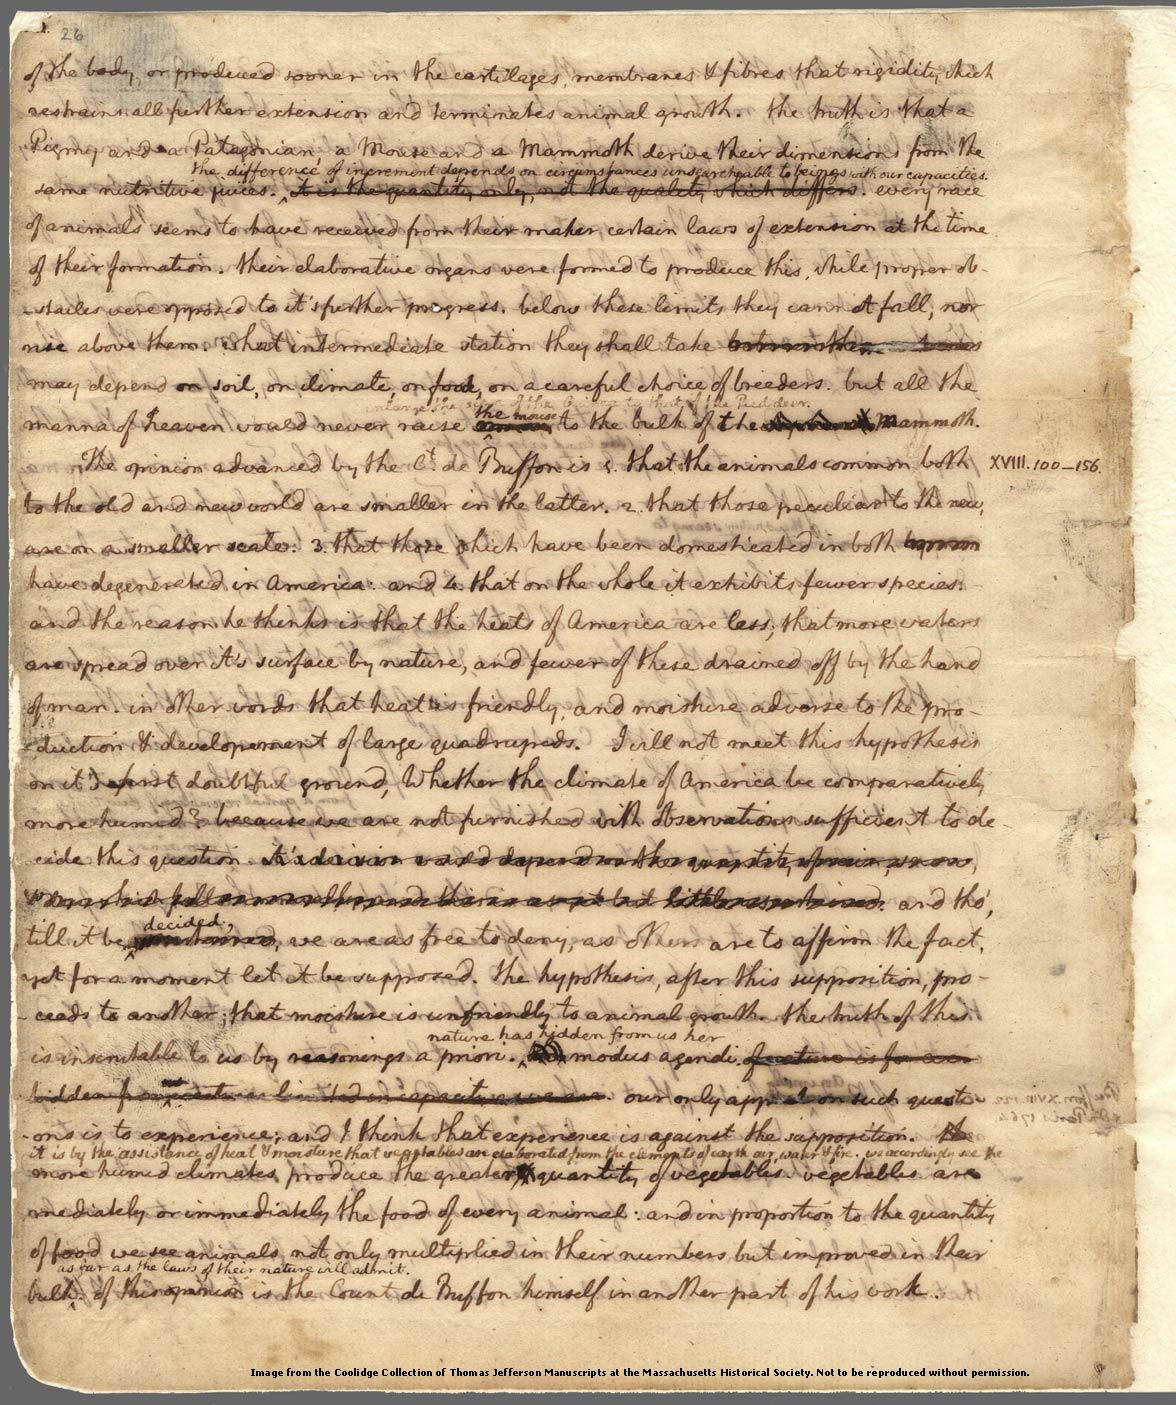 26
of the body, or produced sooner in the cartilages, membranes & fibres that rigidity which
restrains all further extension and terminates animal growth. the truth is that a
Pigmy and a Patagonian, a Mouse and a Mammoth derive their dimensions from the
the difference of increment depends on circumstances unsearcheable to beings with our capacities.
same nutritive juices. it is the quantity only, not the quality which differs. every race
of animals seems to have received from their maker certain laws of extension at the time
of their formation. their elaborative organs were formed to produce this, while proper ob-
-stacles were opposed to it's further progress. below these limits they cannot fall, nor
rise above them. What intermediate station they shall take
may depend on soil, on climate, on food, on a careful choice of breeders. but all the
the mouse
manna of heaven would never raise to the bulk of the Mammoth.
The opinion advanced by the Ct. de Buffon is 1. that the animals common both XVIII. 100-156.
to the old and new world are smaller in the latter. 2. that those peculiar to the new,
are on a smaller scale. 3. that those which have been domesticated in both
have degenerated in America: and 4. that on the whole it exhibits fewer species.
and the reason he thinks is that the heats of America are less; that more waters
are spread over it's surface by nature, and fewer of these drained off by the hand
of man. in other words that heat is friendly, and moisture adverse to the pro-
-duction & developement of large quadrupeds. I will not meet this hypothesis
on it's first doubtful ground, Whether the climate of America be comparatively
more humid? because we are not furnished with observations sufficient to de-
cide this question. and tho',
decided,
till it be we are as free to deny, as others are to affirm the fact,
yet for a moment let it be supposed. the hypothesis, after this supposition, pro-
-ceeds to another; that moisture is unfriendly to animal growth. the truth of this
nature has hidden from us her
is inscrutable to us by reasonings a priori. modus agendi.
our only appeal on such questi-
-ons is to experience; and I think that experience is against the supposition.
it is by the assistance of heat & moisture that vegetables are elaborated from the elements of earth air, water & fire. we accordingly see the
more humid climates produce the greater quantity of vegetables. vegetables are
mediately or immediately the food of every animal: and in proportion to the quantity
of food we see animals not only multiplied in their numbers but improved in their
as far as the laws of their nature will admit.
bulk. of this opinion is the Count de Buffon himself in another part of his work.
Image from the Coolidge Collection of Thomas Jefferson Manuscripts at the Massachusetts Historical Society. Not to be reproduced without permission.